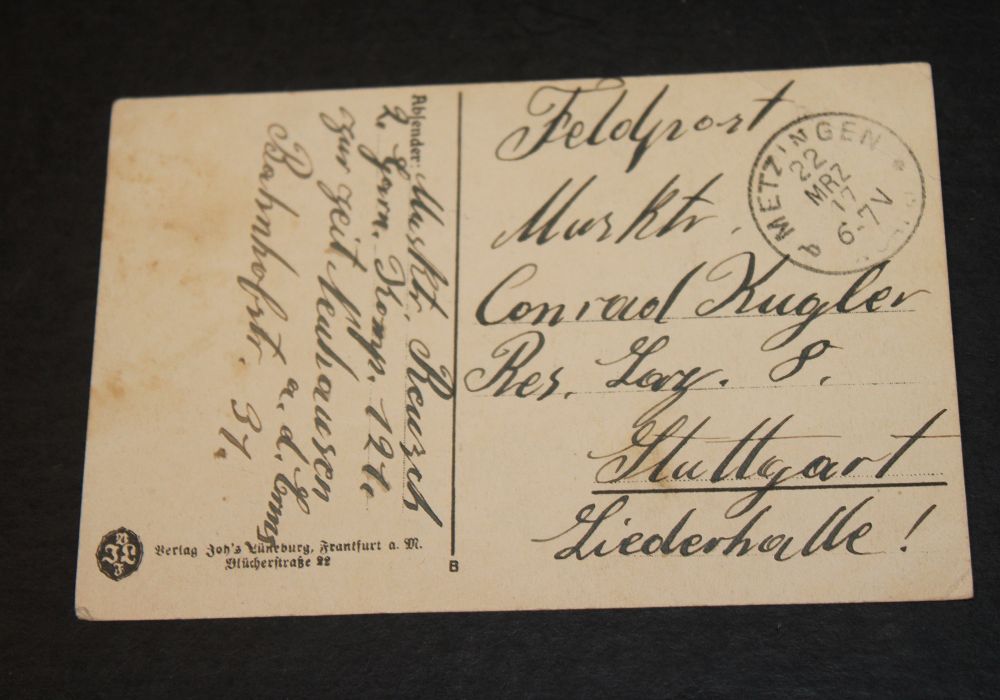 Feldpost
Musktr.
Conrad Kugler
Res. Laz. 8.
Stuttgart
Liederhalle!
METZINGEN
22
MRZ
17
6-7V
Absender: Musktr. Reusch
2. Garn. Komp.
zur Zeit Neuhausen
a. d. Erms
Bahnhofstr. 31.
Verlag Joh's Lüneburg, Frankfurt a. M.
Blücherstraße 22
B